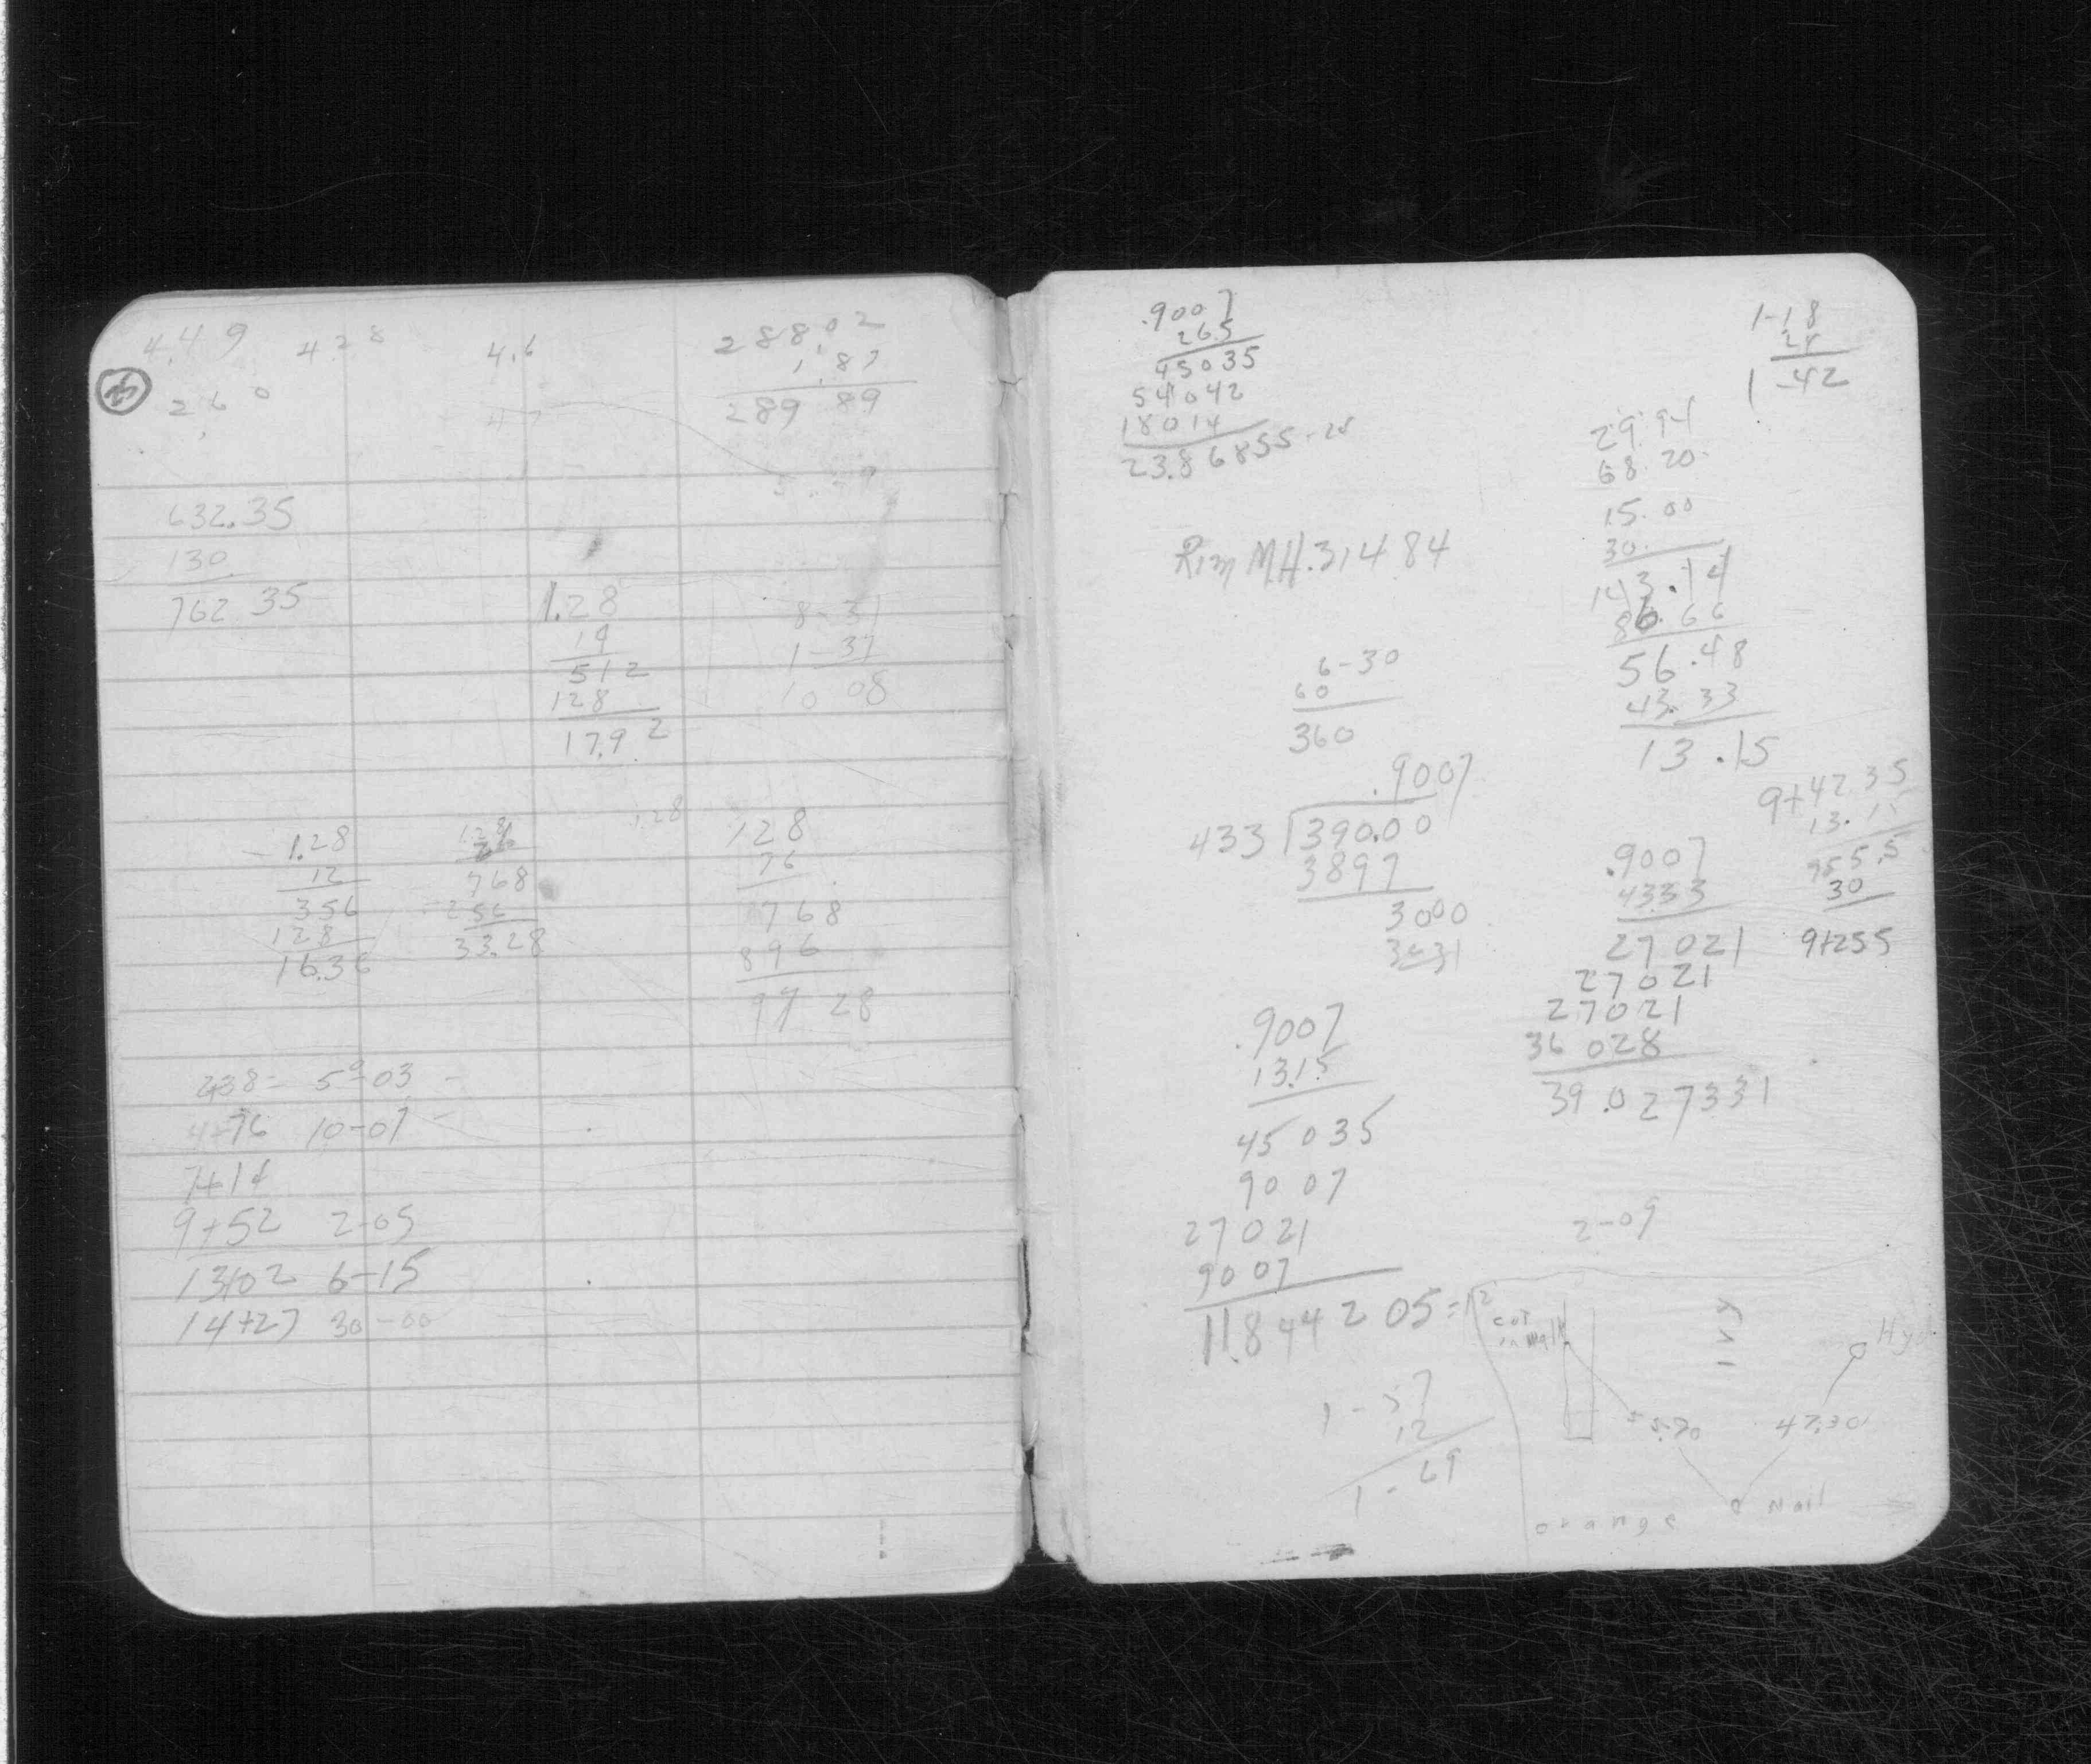 4.49 4.28 4.6 288.02
1.87
260
289 89
632.35
130
762 35
1.28
14
512
128
17.92
8-31
1-37
10 08
1.28
12
356
128
16.36
128
26
768
256
33.28
128
128
76
768
896
97 28
238- 5-03 -
4+76 10-07 -
7+14
9+52 2-05
13+02 6-15
14+27 30-00
.9007
265
45035
54042
18014
23.86855
1-18
24
1-42
29.94
68.20
15.00
30.
143.14
86.66
56.48
43.33
13.15
Rim MH.31484
6-30
60
360
.9007
433 390.00
3897
3000
9+42.35
13.15
955.5
30
9+255
.9007
4333
27021
27021
27021
36 028
39.027331
.9007
13.15
45 035
90 07
27021
9007
11.844205=
2-09
1-57
12
1-69
cut
in walk
Ivy
Hyd
55.70
47.30
Nail
orange